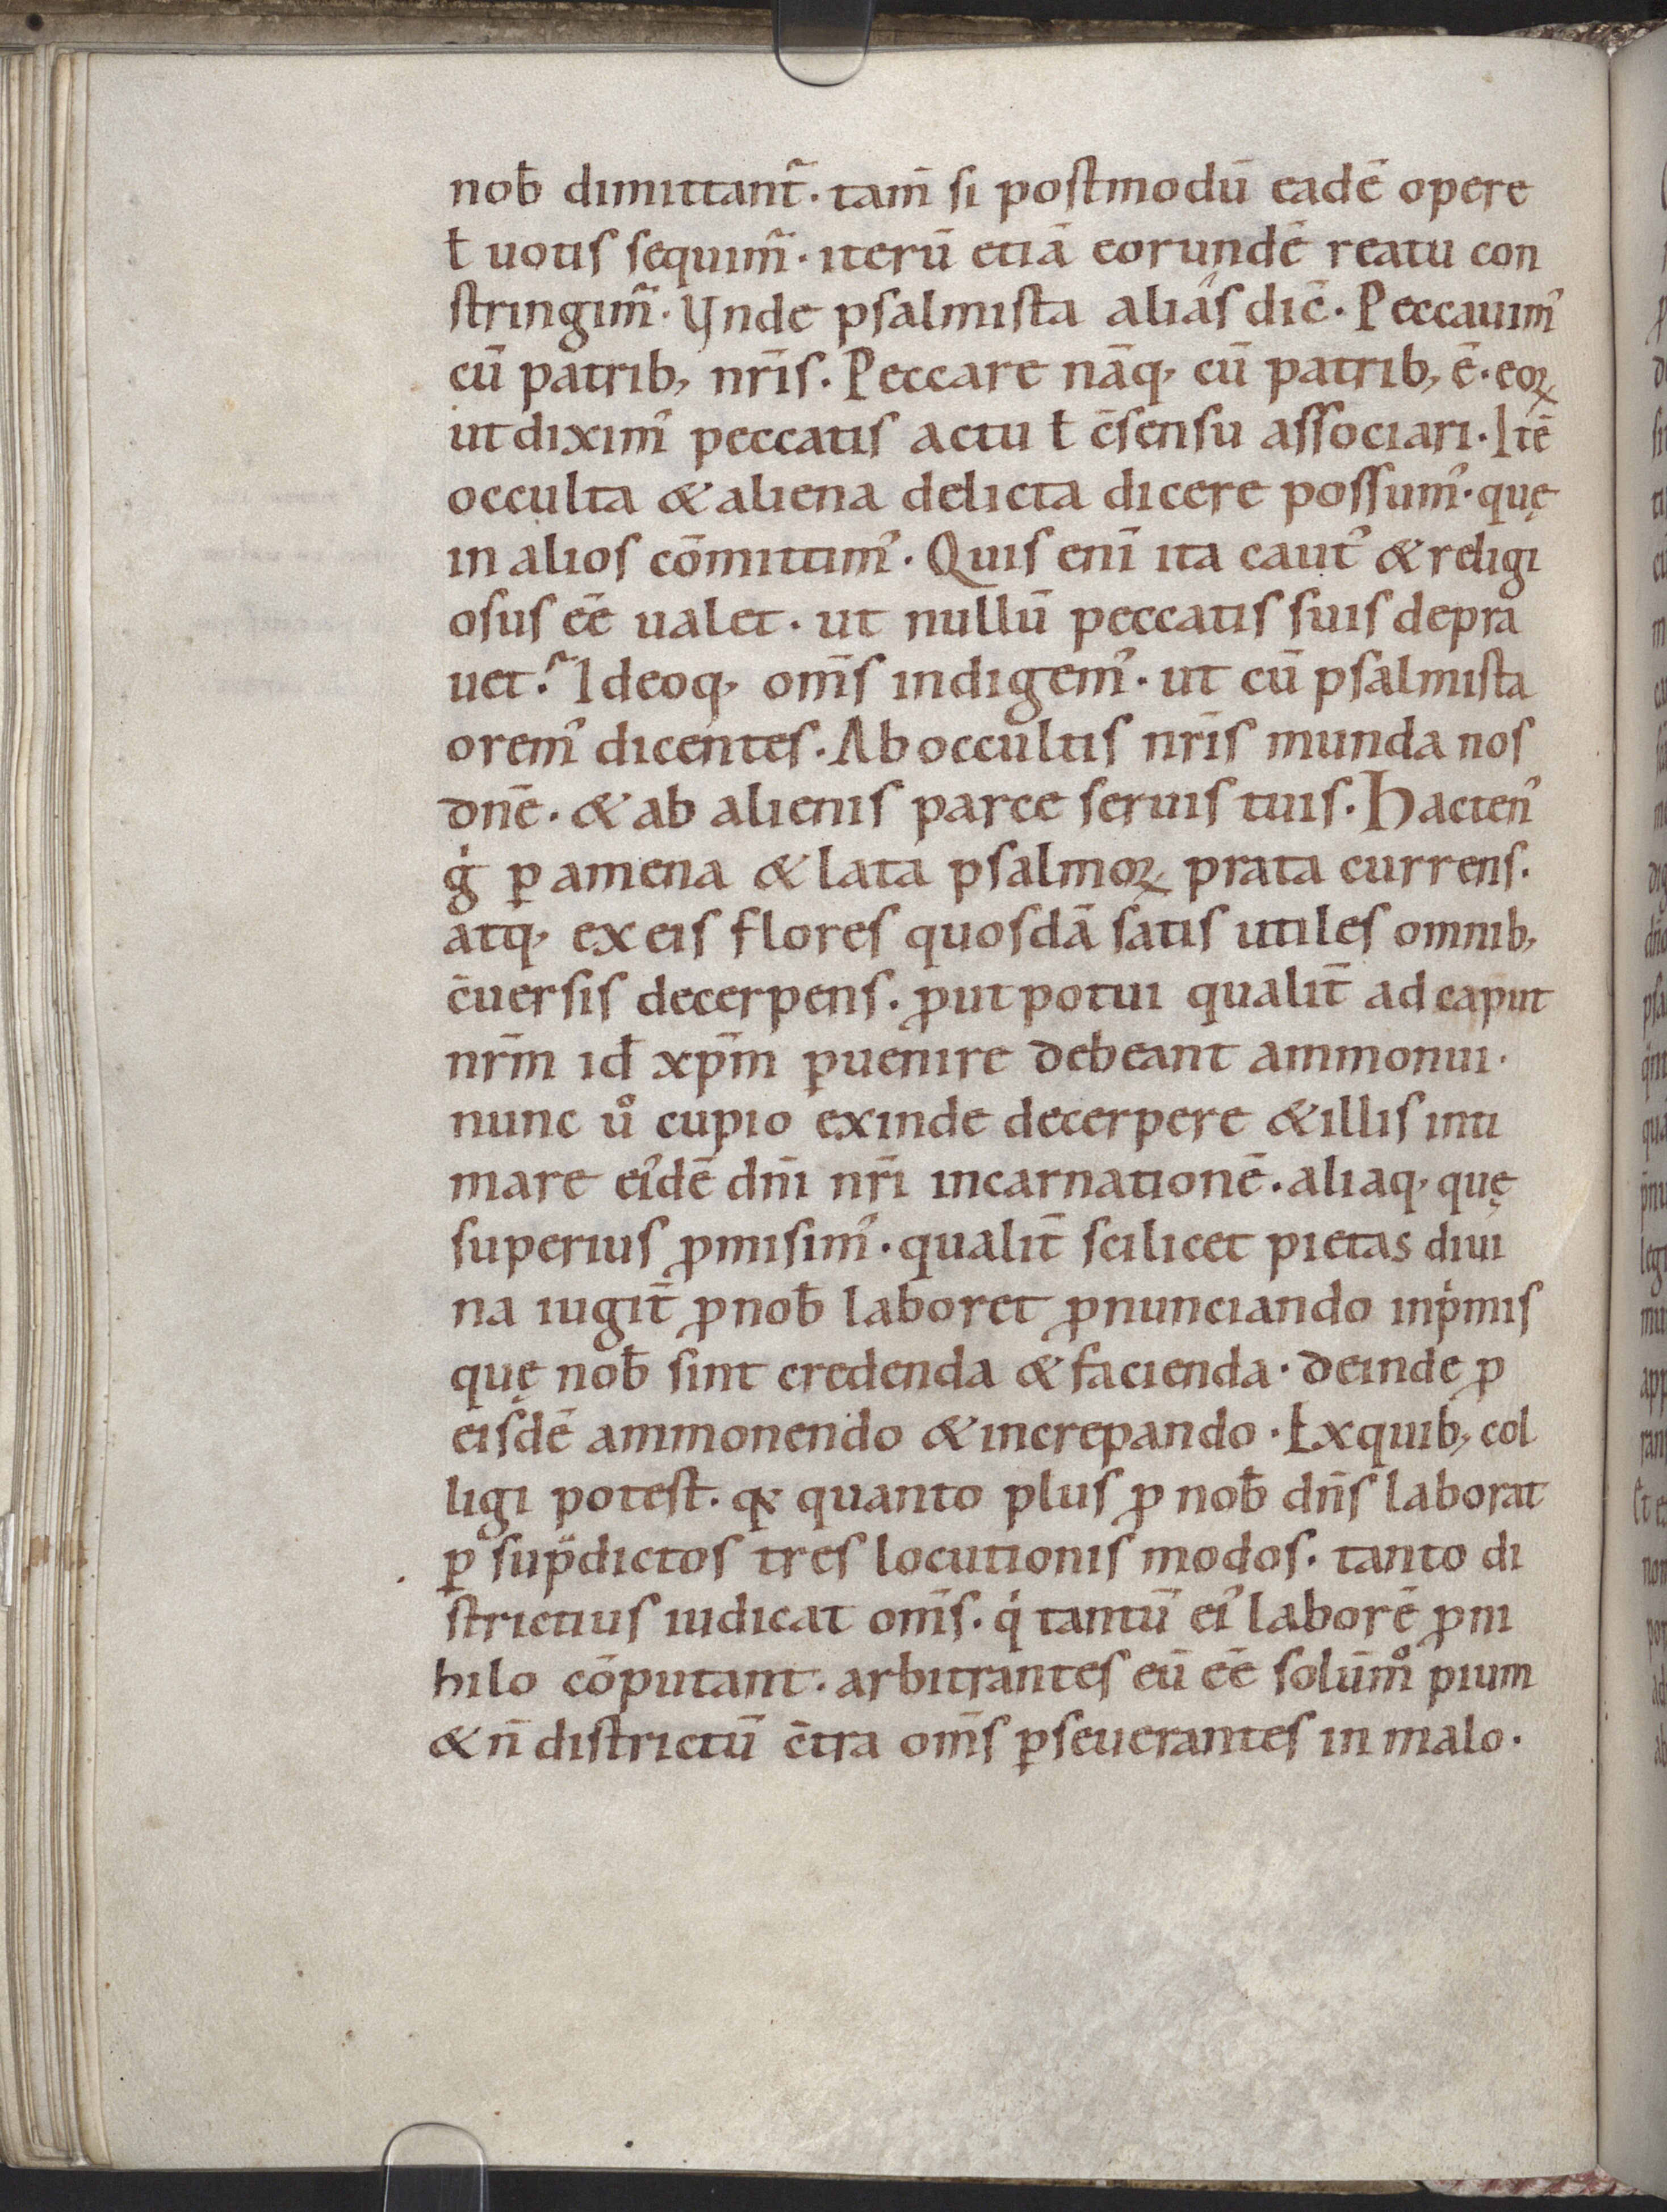 nob̄ dimittant᷑. tam̄ si postmodū eadē opere
ł uotis sequim᷑. iterū etiā eorundē reatu con
stringim᷑. Vnde psalmista aliás dic̄. Peccauim᾽
cū patrib; nr̄is. Peccare nāq; cū patrib; ē. eoꝝ
ut dixim᾽ peccatis actu ł c̄sensu associari. Itē
occulta & aliena delicta dicere possum᾽. quę
in alios cōmittim᾽. Quis eni̅ ita caut᾽ & religi
osus eē ualet. ut nullū peccatis suis depra
uet? Ideoq; om̄s indigem᾽. ut cū psalmista
orem᾽ dicentes. Ab occultis nr̄is munda nos
dn̄e. & ab alienis parce seruis tuis. Hacten᾽
gͥ ꝑ amena & lata psalmoꝝ prata currens.
atq; ex eis flores quosdā satis utiles omnib;
c̄uersis decerpens. ꝓut potui qualit̄ ad caput
nr̄m id̄ xp̄m ꝑuenire debeant ammonui.
nunc uͦ cupio exinde decerpere & illis inti
mare ei᾽dē dn̄i nr̄i incarnationē. aliaq; quę
superius ꝓmisim᾽. qualit̄ scilicet pietas diui
na iugit̄ ꝓ nob̄ laboret ꝓnunciando inpͥmis
quę nob̄ sint credenda & facienda. deinde ꝓ
eisdē ammonendo & increpando. Ex quib; col
ligi potest. qꝫ quanto plus ꝓ nob̄ dn̄s laborat
ꝑ sup̄dictos tres locutionis modos. tanto di
strictius iudicat om̄s. qͥ tantū ei᾽ laborē ꝓ ni
hilo cōputant. arbitrantes eū eē solūmͦ pium
& n̄ districtū c̄tra om̄s ꝑseuerantes in malo.